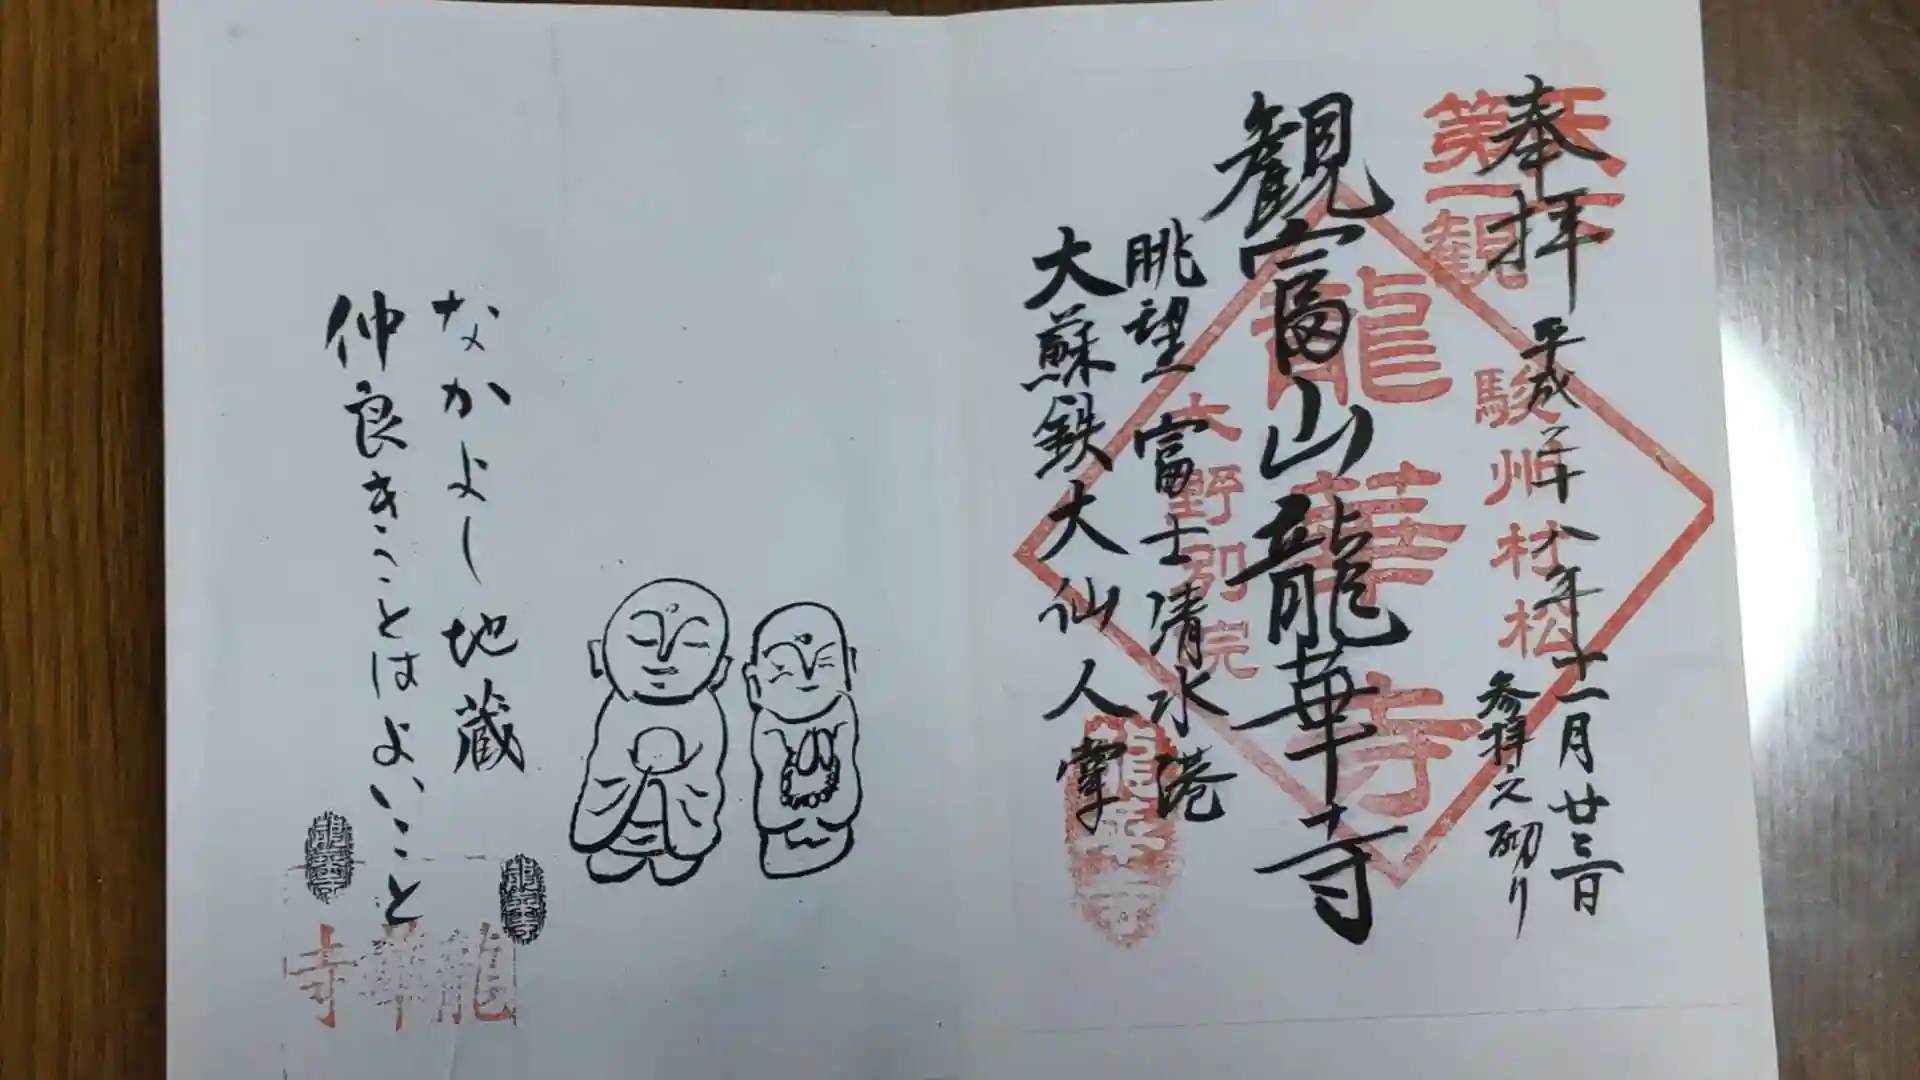 奉拝
平成二十八年十一月廿三日
参拝之砌り
天下
第一観
駿州村松
観富山龍華寺
龍華寺
大野別院
眺望 富士清水港
大蘇鉄大仙人掌
龍華寺
なかよし地蔵
仲良きことはよいこと
龍華寺